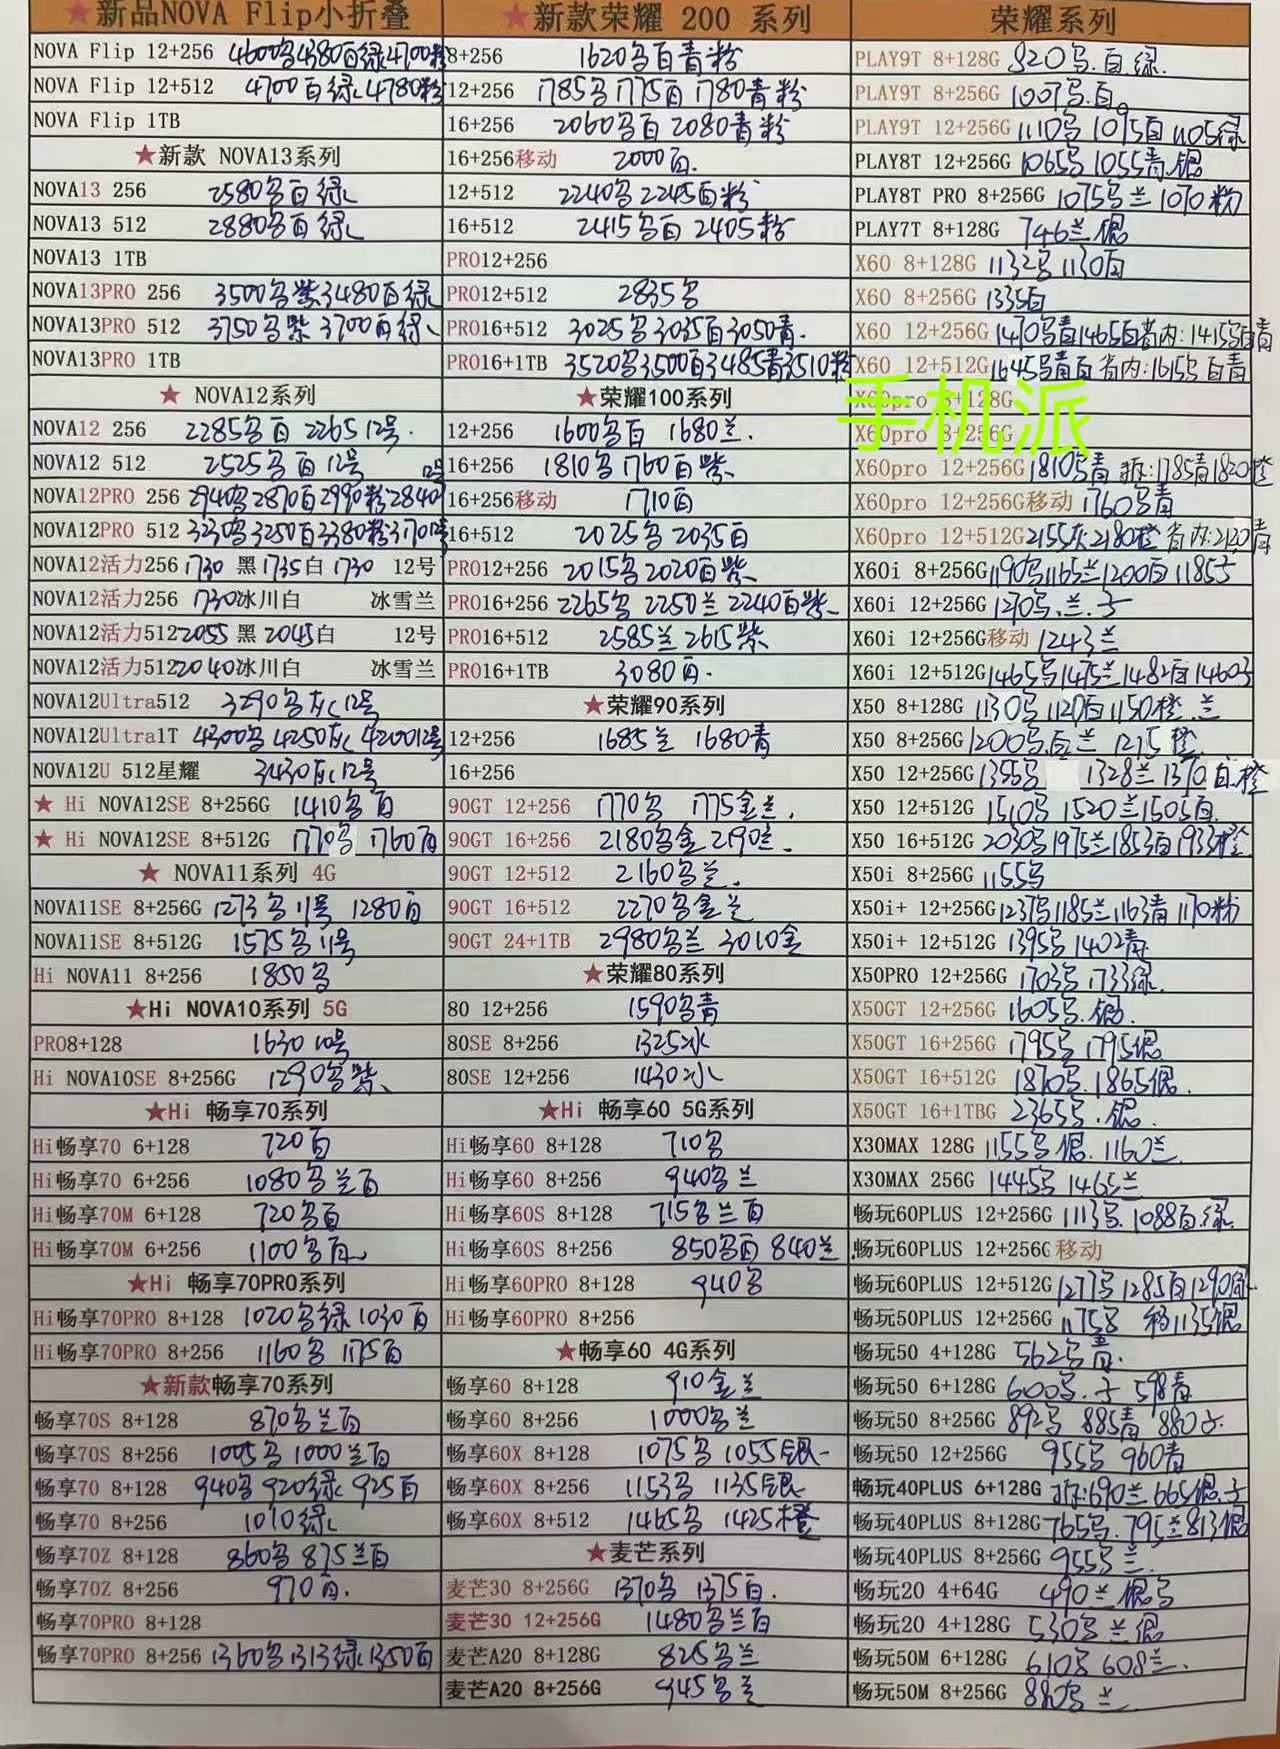 ★新品NOVA Flip小折叠
NOVA Flip 12+256 4600 4380白绿4700粉
NOVA Flip 12+512 4700白绿 4780粉
NOVA Flip 1TB
★新款 NOVA13系列
NOVA13 256 2580 白绿
NOVA13 512 2880 白绿
NOVA13 1TB
NOVA13PRO 256 3500 紫3480白绿
NOVA13PRO 512 3750 紫 3700白绿
NOVA13PRO 1TB
★ NOVA12系列
NOVA12 256 2285 白 2265 12号
NOVA12 512 2525 白 12号
NOVA12PRO 256 2940 2870白2990粉2840 12号
NOVA12PRO 512 3250白3380粉317012号
NOVA12活力256 1730 黑 1735白 1730 12号
NOVA12活力256 1730冰川白 冰雪兰
NOVA12活力512 2055 黑 2045白 12号
NOVA12活力512 2040冰川白 冰雪兰
NOVA12Ultra512 3290 灰 12号
NOVA12Ultra1T 4300 4250灰 4200 12号
NOVA12U 512星耀 3430灰 12号
★ Hi NOVA12SE 8+256G 1410 白
★ Hi NOVA12SE 8+512G 1770 1760白
★ NOVA11系列 4G
NOVA11SE 8+256G 1273 11号 1280白
NOVA11SE 8+512G 1575 11号
Hi NOVA11 8+256 1850
★Hi NOVA10系列 5G
PRO8+128 1630 10号
Hi NOVA10SE 8+256G 1290 紫
★Hi 畅享70系列
Hi畅享70 6+128 720白
Hi畅享70 6+256 1080 兰白
Hi畅享70M 6+128 720 白
Hi畅享70M 6+256 1100 白
★Hi 畅享70PRO系列
Hi畅享70PRO 8+128 1020 绿 1030白
Hi畅享70PRO 8+256 1160 1175白
★新款畅享70系列
畅享70S 8+128 870 兰白
畅享70S 8+256 1005 1000兰白
畅享70 8+128 940 920绿 925白
畅享70 8+256 1010绿
畅享70Z 8+128 860 875兰白
畅享70Z 8+256 970白
畅享70PRO 8+128
畅享70PRO 8+256 1360 1313绿1350白
★新款荣耀 200 系列
8+256 1620 白青粉
12+256 1785 1775白 1780青粉
16+256 2060 白 2080青粉
16+256移动 2000白
12+512 2240 2245白粉
16+512 2415 白 2405粉
PRO12+256
PRO12+512 2835
PRO16+512 3025 3035白3050青
PRO16+1TB 3520 3500白3485青3510粉
★荣耀100系列
12+256 1600 白 1680兰
16+256 1810 1760白紫
16+256移动 1710白
16+512 2025 2035白
PRO12+256 2015 2020白紫
PRO16+256 2265 2250兰 2240白紫
PRO16+512 2585兰 2615紫
PRO16+1TB 3080白
★荣耀90系列
12+256 1685兰 1680青
16+256
90GT 12+256 1770 1775金兰
90GT 16+256 2180 金 2190兰
90GT 12+512 2160 兰
90GT 16+512 2270 金兰
90GT 24+1TB 2980 兰 3010金
★荣耀80系列
80 12+256 1590 青
80SE 8+256 1325冰
80SE 12+256 1430冰
★Hi 畅享60 5G系列
Hi畅享60 8+128 710
Hi畅享60 8+256 940 兰
Hi畅享60S 8+128 715 兰白
Hi畅享60S 8+256 850 白 840兰
Hi畅享60PRO 8+128 940
Hi畅享60PRO 8+256
★畅享60 4G系列
畅享60 8+128 910金兰
畅享60 8+256 1000 兰
畅享60X 8+128 1075 1055银
畅享60X 8+256 1153 1135银
畅享60X 8+512 1465 1425橙
★麦芒系列
麦芒30 8+256G 1370 1375白
麦芒30 12+256G 1480 兰白
麦芒A20 8+128G 825 兰
麦芒A20 8+256G 945 兰
荣耀系列
PLAY9T 8+128G 920 白.绿
PLAY9T 8+256G 1007 白
PLAY9T 12+256G 1110 1095白 1105绿
PLAY8T 12+256G 1065 1055青.银
PLAY8T PRO 8+256G 1075 兰 1070粉
PLAY7T 8+128G 746兰.银
X60 8+128G 1132 1130白
X60 8+256G 1335白
X60 12+256G 1470 青1465白 省内:1415 白青
X60 12+512G 1645 青白 省内:1615 白青
X60pro 8+128G
手机派
X60pro 8+256G
X60pro 12+256G 1810 青 拆:1785青1820橙
X60pro 12+256G移动 1760 青
X60pro 12+512G 2155灰2180橙 省内:2120青
X60i 8+256G 1190 1165兰1200白 1185
X60i 12+256G 1270 .兰.
X60i 12+256G移动 1243兰
X60i 12+512G 1465 1475兰1482白1460
X50 8+128G 1130 1120白1150橙.兰
X50 8+256G 1200 兰 1215橙
X50 12+256G 1355 1328兰1370 白.橙
X50 12+512G 1510 1520兰1505白
X50 16+512G 2030 1975兰1853白1933橙
X50i 8+256G 1155
X50i+ 12+256G 1237 1185兰1163青1170粉
X50i+ 12+512G 1395 1402青
X50PRO 12+256G 1703 1733绿
X50GT 12+256G 1605 .银
X50GT 16+256G 1795 1795银
X50GT 16+512G 1870 1865银
X50GT 16+1TBG 2365 .银
X30MAX 128G 1155 银.1160兰
X30MAX 256G 1445 1465兰
畅玩60PLUS 12+256G 1113 1088白.绿
畅玩60PLUS 12+256G移动
畅玩60PLUS 12+512G 1277 1285白1290绿
畅玩50PLUS 12+256G 1175 1135银
畅玩50 4+128G 562 青
畅玩50 6+128G 600 598青
畅玩50 8+256G 892 885青 880
畅玩50 12+256G 955 960青
畅玩40PLUS 6+128G 拆:690兰665银
畅玩40PLUS 8+128G 765 .795兰813银
畅玩40PLUS 8+256G 955 兰
畅玩20 4+64G 490兰 银
畅玩20 4+128G 530 兰 银
畅玩50M 6+128G 610 608兰
畅玩50M 8+256G 880 兰